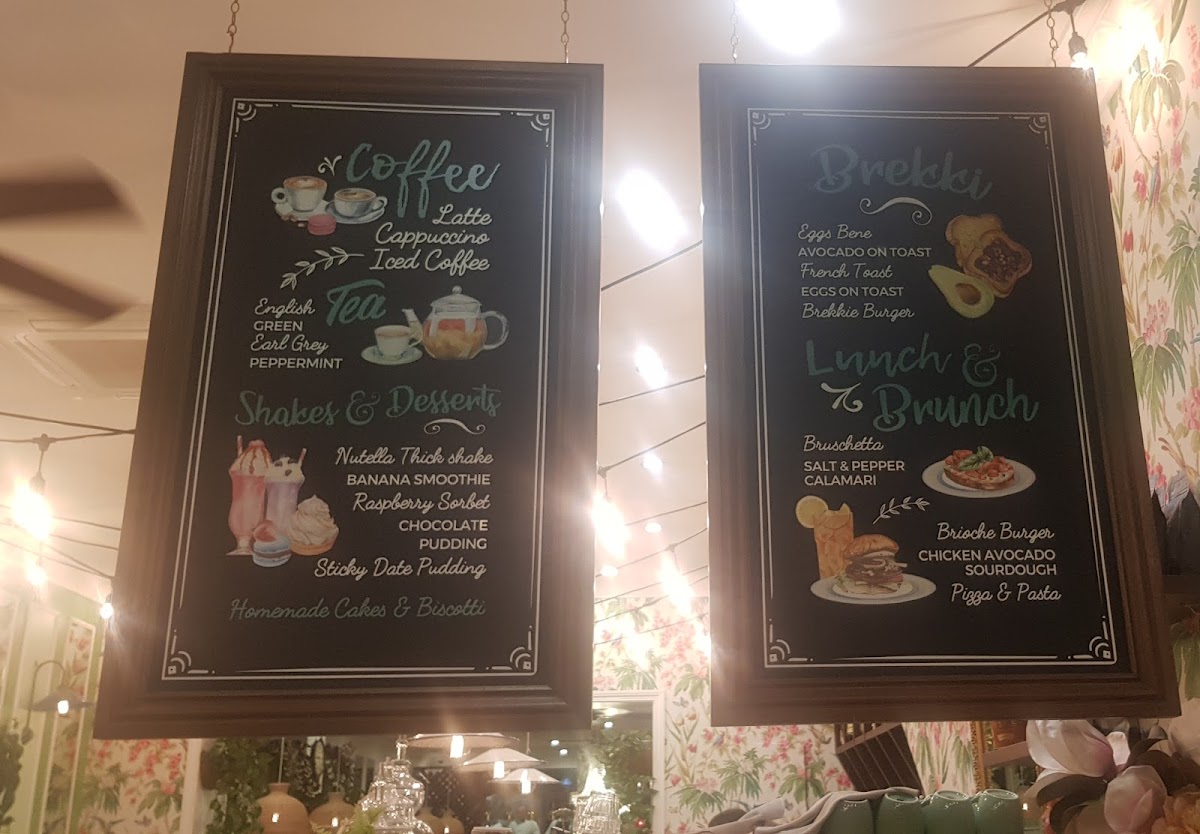 Coffee
Latte
Cappuccino
Iced Coffee
Tea
English
GREEN
Earl Grey
PEPPERMINT
Shakes & Desserts
Nutella Thick shake
BANANA SMOOTHIE
Raspberry Sorbet
CHOCOLATE
PUDDING
Sticky Date Pudding
Homemade Cakes & Biscotti
Brekki
Eggs Bene
AVOCADO ON TOAST
French Toast
EGGS ON TOAST
Brekkie Burger
Lunch &
Brunch
Bruschetta
SALT & PEPPER
CALAMARI
Brioche Burger
CHICKEN AVOCADO
SOURDOUGH
Pizza & Pasta